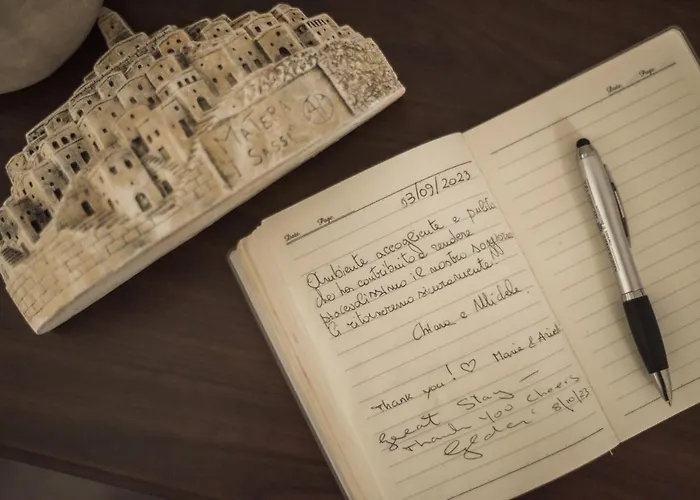 MATERA
SASSI
Date Page
Date Page
03/09/2023
Ambiente accogliente e pulito
che ha contribuito a rendere
piacevolissimo il nostro soggiorno
Ci ritorneremo sicuramente!
Chiara e
Thank you! ♡ Marie & Ariel
Great Stay —
Thank You Cheers
8/10/23